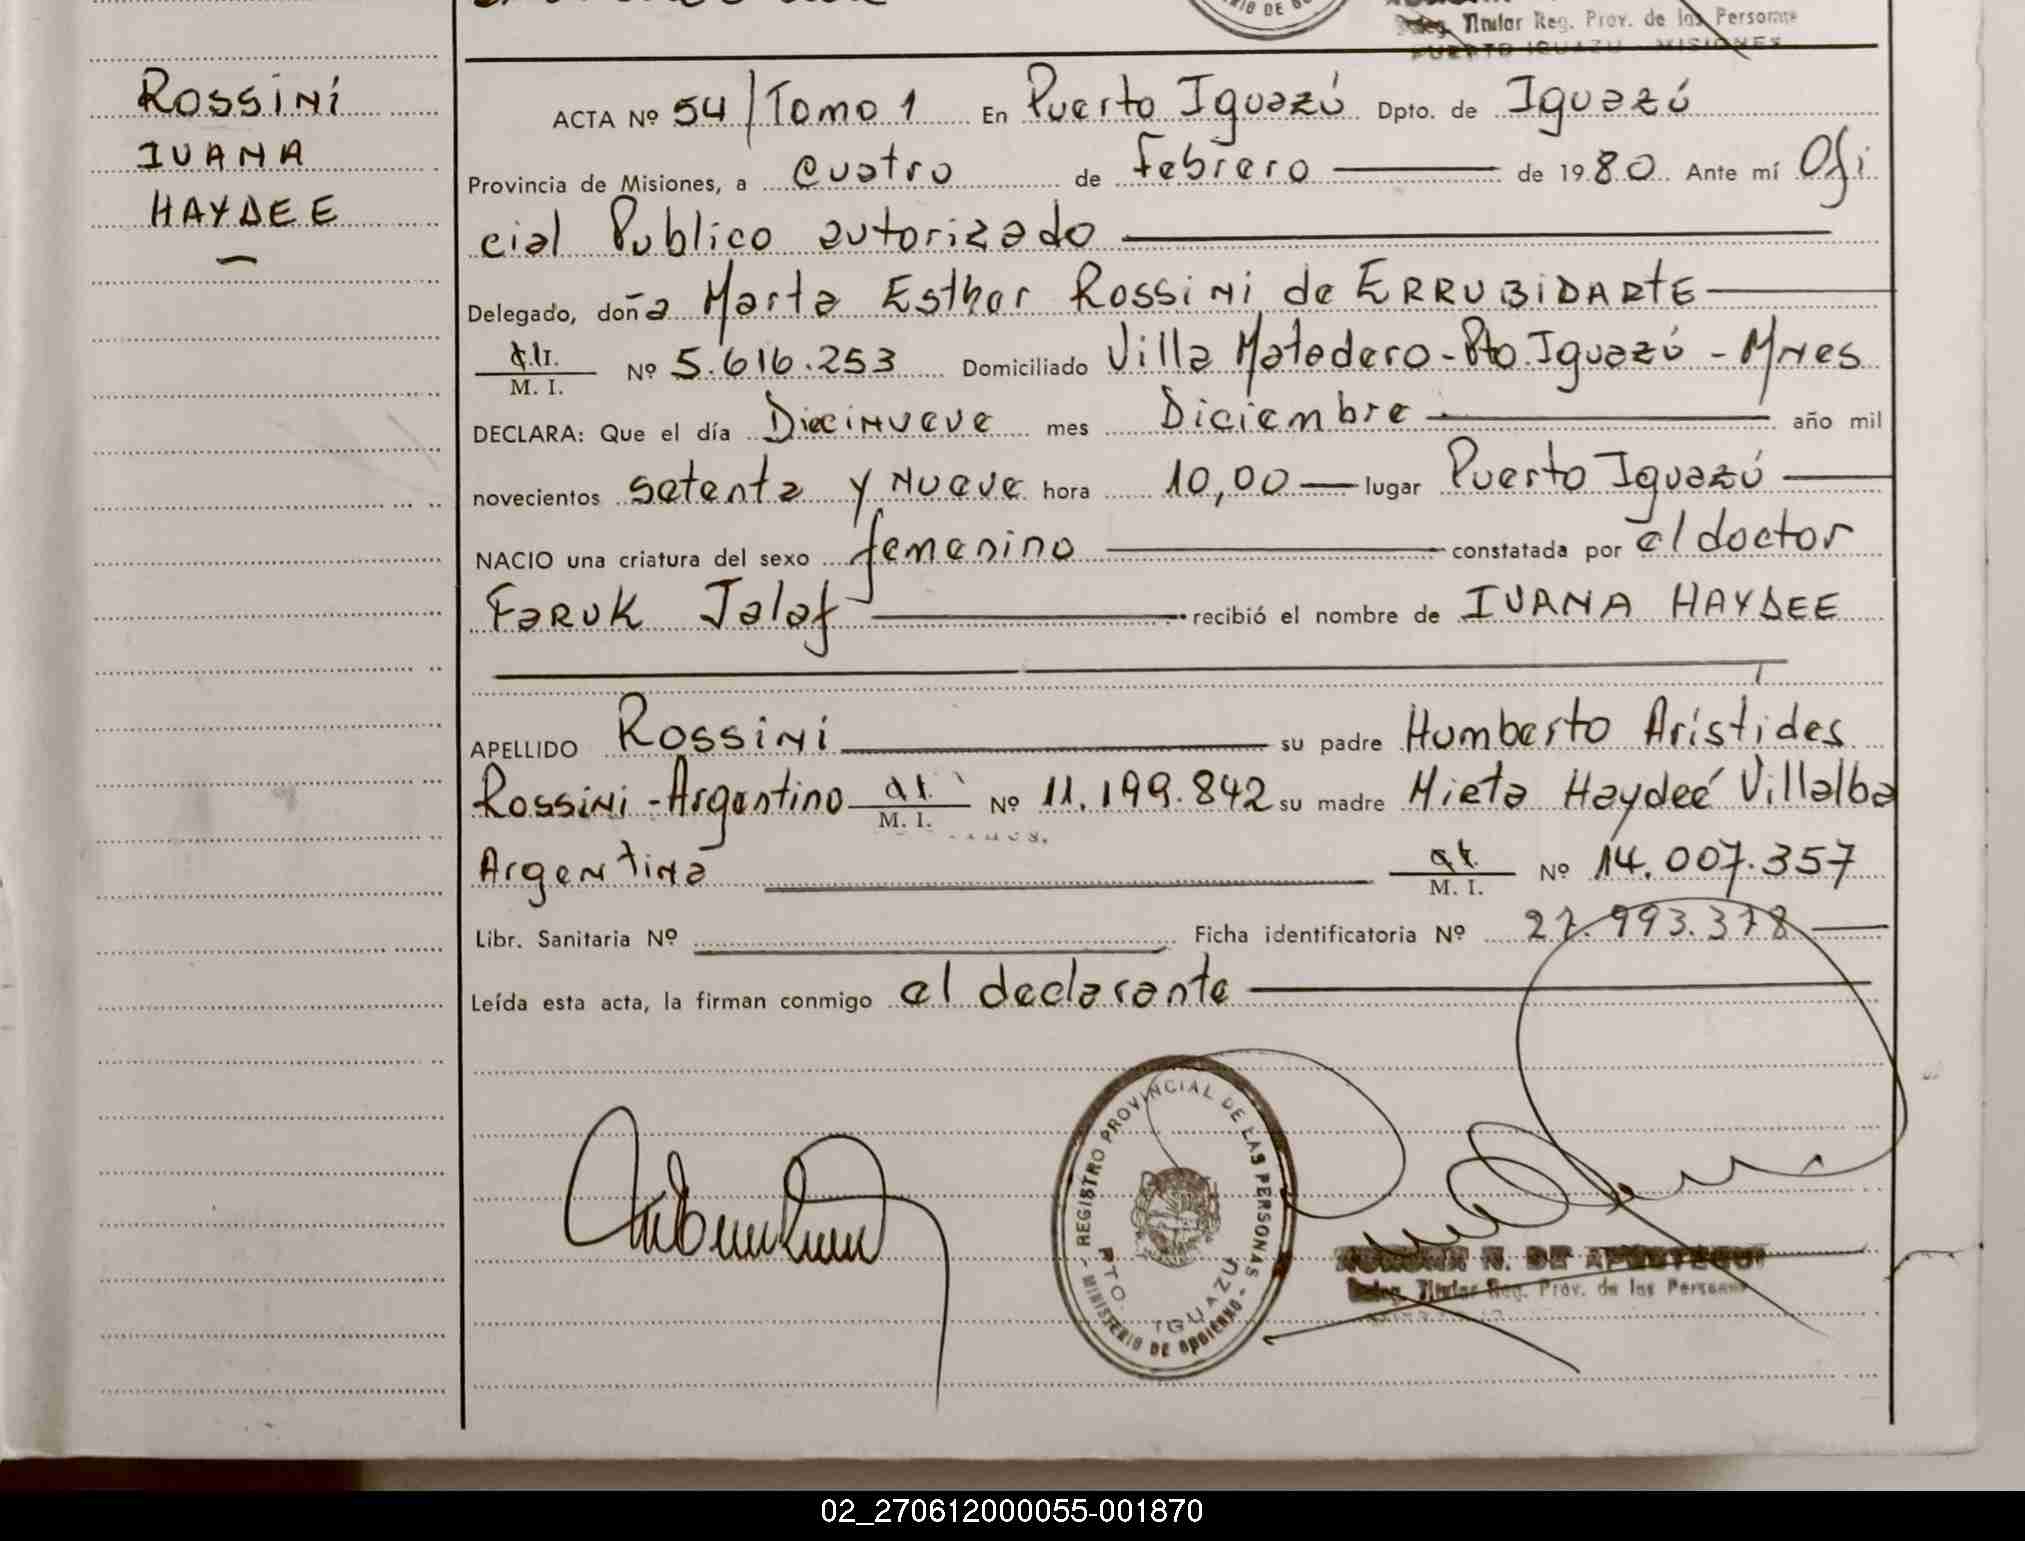 Deleg. Titular Reg. Prov. de las Personas
PUERTO IGUAZU - MISIONES
ROSSINI
IVANA
HAYDEE
ACTA Nº 54/Tomo 1 En Puerto Iguazú Dpto. de Iguazú
Provincia de Misiones, a cuatro de Febrero de 1980. Ante mí Ofi
cial Publico autorizado
Delegado, doña Marta Esther Rossini de ERRUBIDARTE
M. I. Nº 5.616.253 Domiciliado Villa Matadero - Pto. Iguazú - Mnes
DECLARA: Que el día Diecinueve mes Diciembre año mil
novecientos setenta y nueve hora 10,00 lugar Puerto Iguazú
NACIO una criatura del sexo femenino constatada por el doctor
Faruk Jalaf recibió el nombre de IVANA HAYDEE
APELLIDO Rossini su padre Humberto Arístides
Rossini - Argentino M. I. Nº 11.199.842 su madre Mieta Haydeé Villalba
Argentina M. I. Nº 14.007.357
Libr. Sanitaria Nº Ficha identificatoria Nº 27.993.378
Leída esta acta, la firman conmigo el declarante
REGISTRO PROVINCIAL DE LAS PERSONAS
PTO. IGUAZU
- MINISTERIO DE GOBIERNO -
N. DE
Deleg. Titular Reg. Prov. de las Personas
02_270612000055-001870